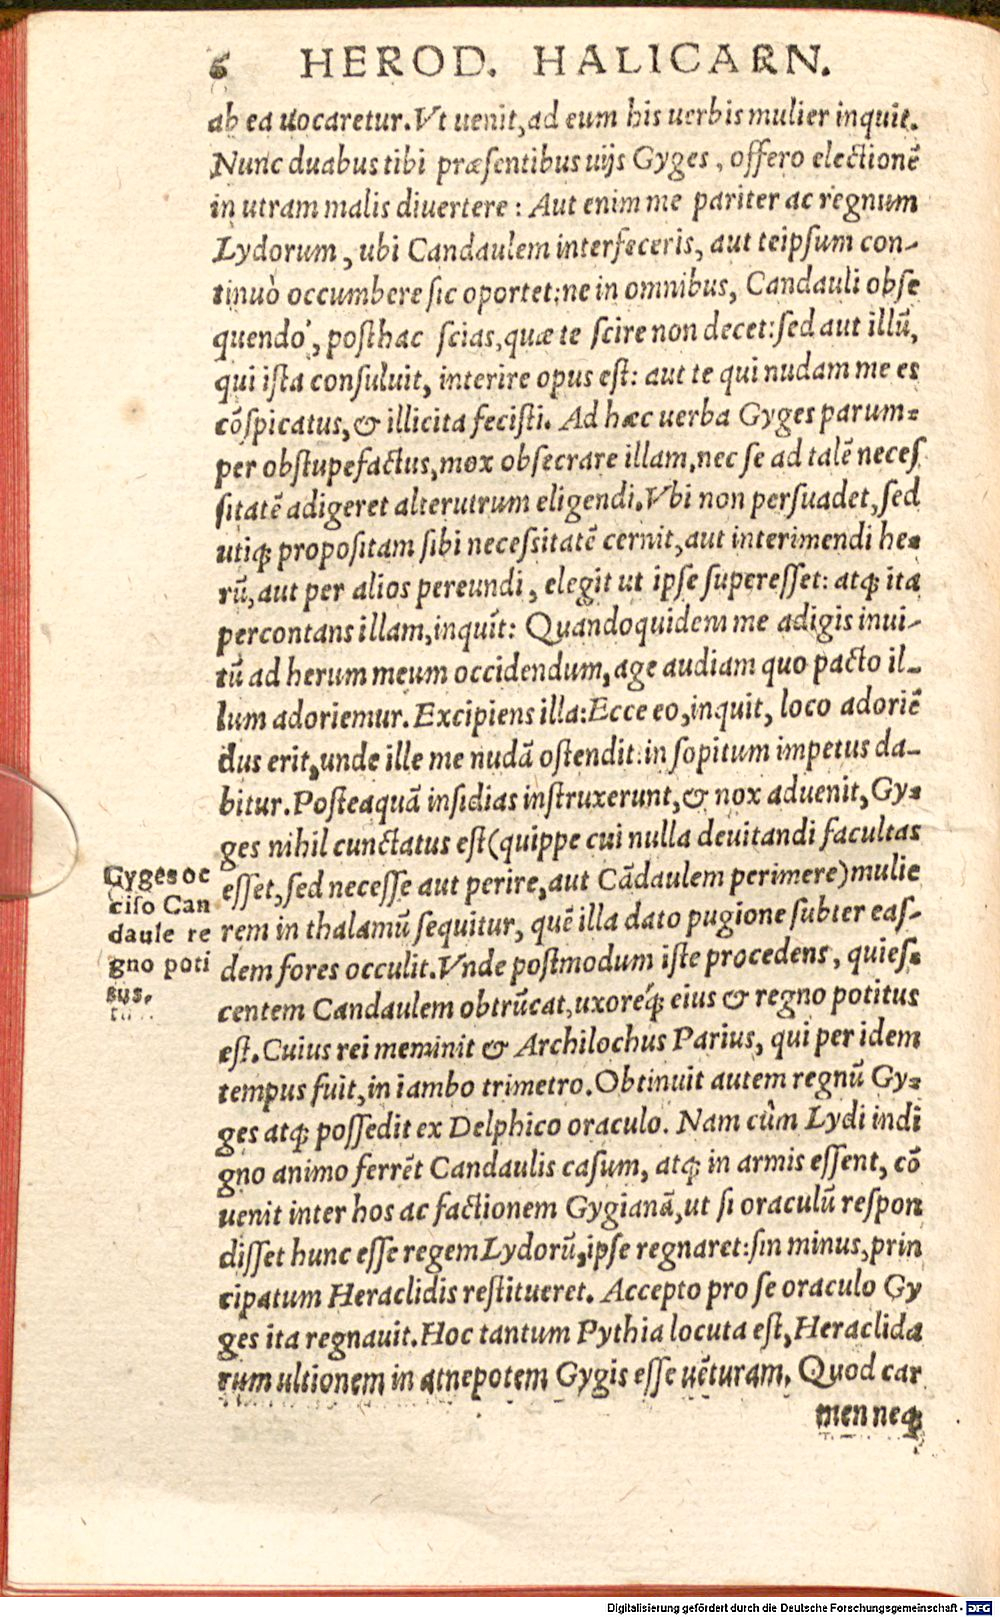 6 HEROD. HALICARN.
ab ea uocaretur. Vt uenit, ad eum his uerbis mulier inquit.
Nunc duabus tibi præſentibus uijs Gyges, offero electionē
in utram malis diuertere: Aut enim me pariter ac regnum
Lydorum, ubi Candaulem interfeceris, aut teipſum con-
tinuò occumbere ſic oportet: ne in omnibus, Candauli obſe
quendo, poſthac ſcias, quæ te ſcire non decet: ſed aut illū,
qui iſta conſuluit, interire opus eſt: aut te qui nudam me es
cōſpicatus, & illicita feciſti. Ad hæc uerba Gyges parum-
per obſtupefactus, mox obſecrare illam, nec ſe ad talē neceſ
ſitatē adigeret alterutrum eligendi. Vbi non perſuadet, ſed
utiq; propoſitam ſibi neceſsitatē cernit, aut interimendi he-
rū, aut per alios pereundi, elegit ut ipſe ſupereſſet: atq; ita
percontans illam, inquit: Quandoquidem me adigis inui-
tū ad herum meum occidendum, age audiam quo pacto il-
lum adoriemur. Excipiens illa: Ecce eo, inquit, loco adoriē
dus erit, unde ille me nudā oſtendit: in ſopitum impetus da-
bitur. Poſteaquā inſidias inſtruxerunt, & nox aduenit, Gy-
ges nihil cunctatus eſt (quippe cui nulla deuitandi facultas
eſſet, ſed neceſſe aut perire, aut Cādaulem perimere) mulie
rem in thalamū ſequitur, quē illa dato pugione ſubter eaſ-
dem fores occulit. Vnde poſtmodum iſte procedens, quieſ-
centem Candaulem obtrūcat, uxoréq; eius & regno potitus
eſt. Cuius rei meminit & Archilochus Parius, qui per idem
tempus fuit, in iambo trimetro. Obtinuit autem regnū Gy-
ges atq; poſſedit ex Delphico oraculo. Nam cùm Lydi indi
gno animo ferrēt Candaulis caſum, atq; in armis eſſent, cō
uenit inter hos ac factionem Gygianā, ut ſi oraculū reſpon
diſſet hunc eſſe regem Lydorū, ipſe regnaret: ſin minus, prin
cipatum Heraclidis reſtitueret. Accepto pro ſe oraculo Gy
ges ita regnauit. Hoc tantum Pythia locuta eſt, Heraclida
rum ultionem in atnepotem Gygis eſſe uēturam. Quod car
men neq;
Gyges oc
ciſo Can
daule re
gno poti
tus.
Digitalisierung gefördert durch die Deutsche Forschungsgemeinschaft - DFG